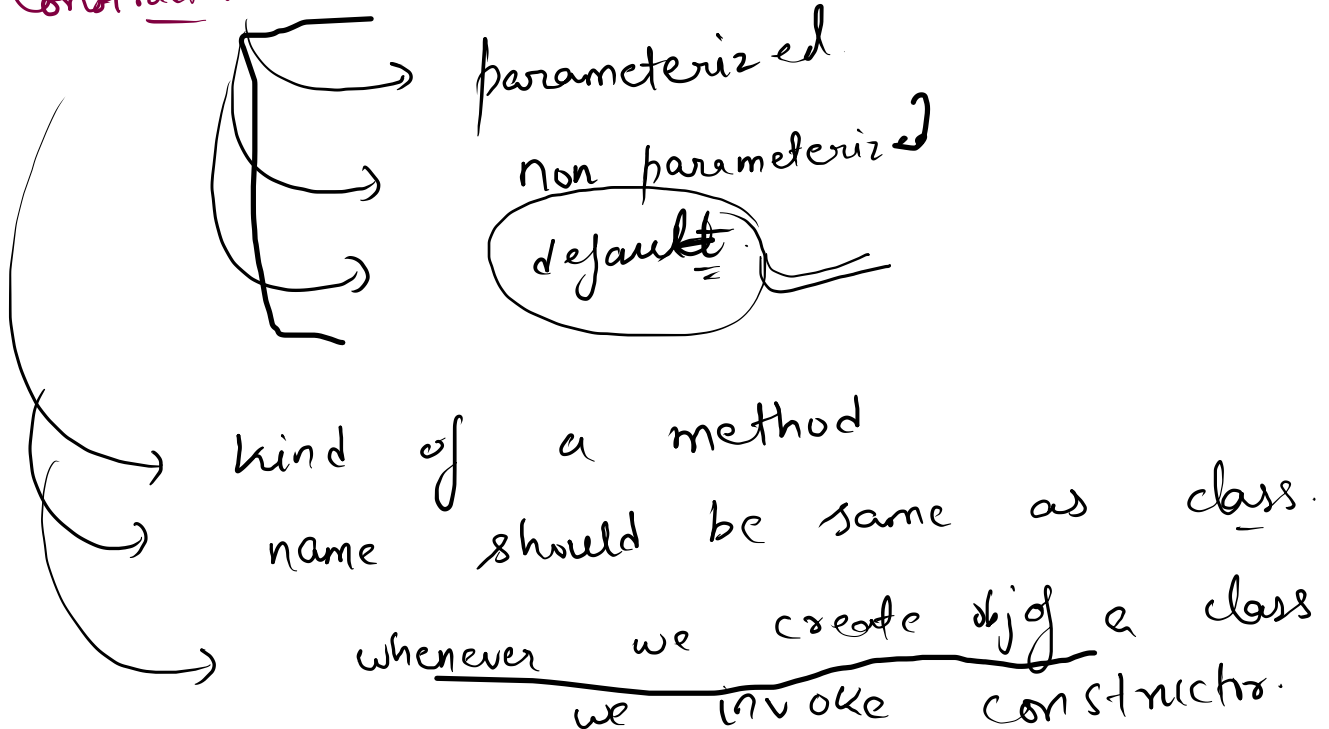 parameterized
non parameterized
default
kind of a method
name should be same as class.
whenever we create obj of a class
we invoke constructor.